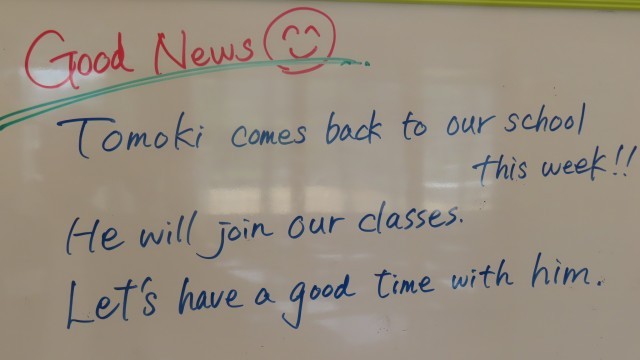 Good News
Tomoki comes back to our school
this week!!
He will join our classes.
Let's have a good time with him.